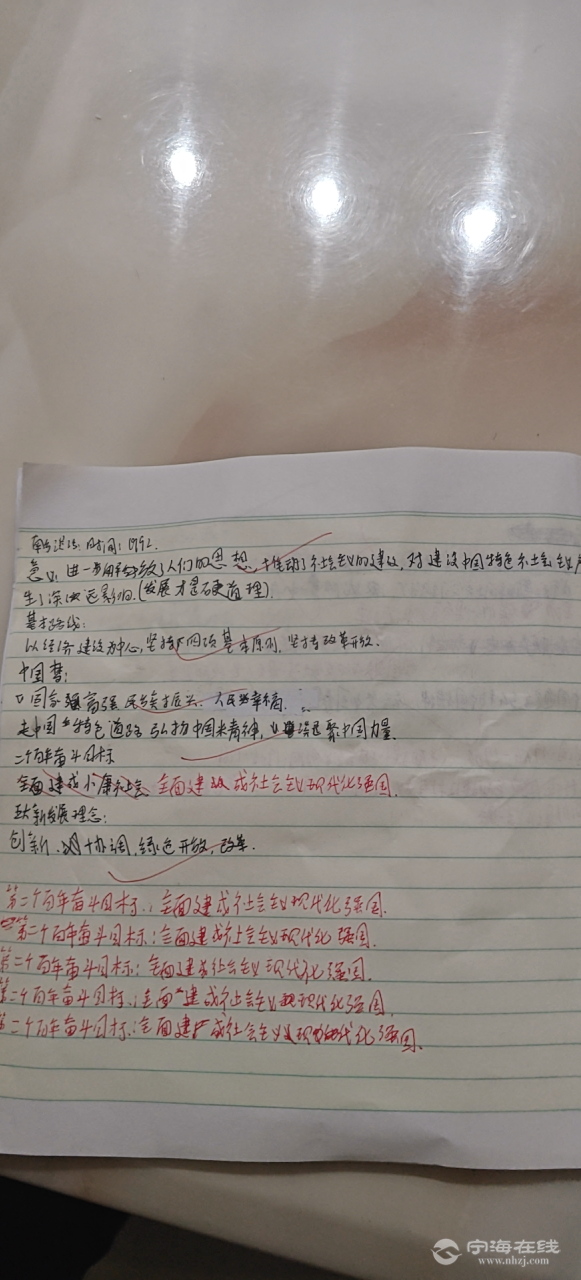 南方谈话: 时间: 1992.
意义: 进一步解放了人们的思想, 推动了社会主义的建设, 对建设中国特色社会主义产
生了深远影响. (发展才是硬道理).
基本路线:
以经济建设为中心, 坚持四项基本原则, 坚持改革开放.
中国梦:
国家富强 民族振兴. 人民幸福.
走中国特色道路 弘扬中国精神, 凝聚中国力量.
二个百年奋斗目标
全面建成小康社会 全面建成社会主义现代化强国.
五大新发展理念:
创新. 协调, 绿色 开放, 改革.
第二个百年奋斗目标: 全面建成社会主义现代化强国.
第二个百年奋斗目标: 全面建成社会主义现代化强国.
第二个百年奋斗目标: 全面建成社会主义现代化强国.
第二个百年奋斗目标: 全面建成社会主义现代化强国.
第二个百年奋斗目标: 全面建成社会主义现代化强国.
宁海在线
www.nhzj.com